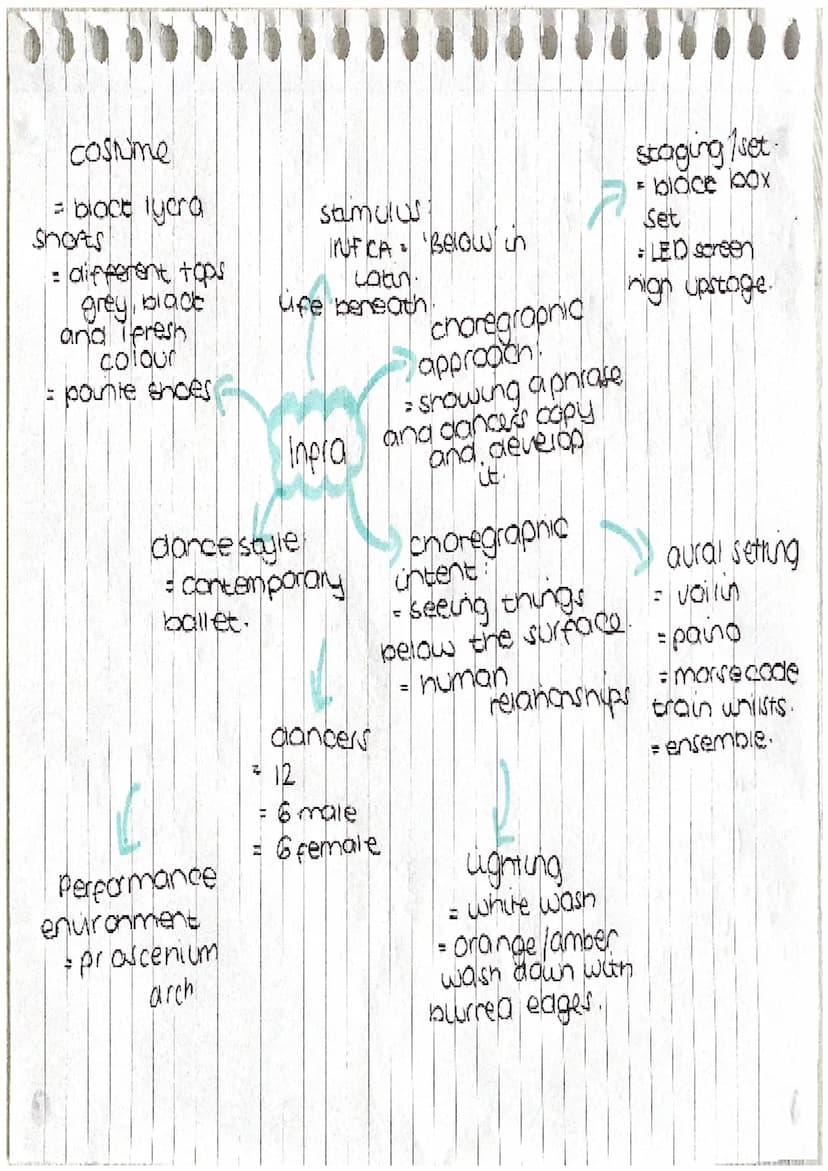 costume
= black lycra
shorts
= different tops
grey, black
and 1 fresh
colour
= pointe shoes
stimulus:
INFRA = 'Below' in
Latin.
life beneath.
staging/set.
= black box
set
= LED screen
high upstage.
choregraphic
approach:
= showing a phrase
and dancers copy
and develop
it.
Infra
dance style:
= contemporary
ballet.
choregraphic
intent:
= seeing things
below the surface.
= human
relationships
aural setting
= voilin
= paino
= morse code
train whilsts.
= ensemble.
dancers
= 12
= 6 male
= 6 female
Performance
environment
= proscenium
arch
Lighting
= white wash
= orange/amber
wash down with
blurred edges.